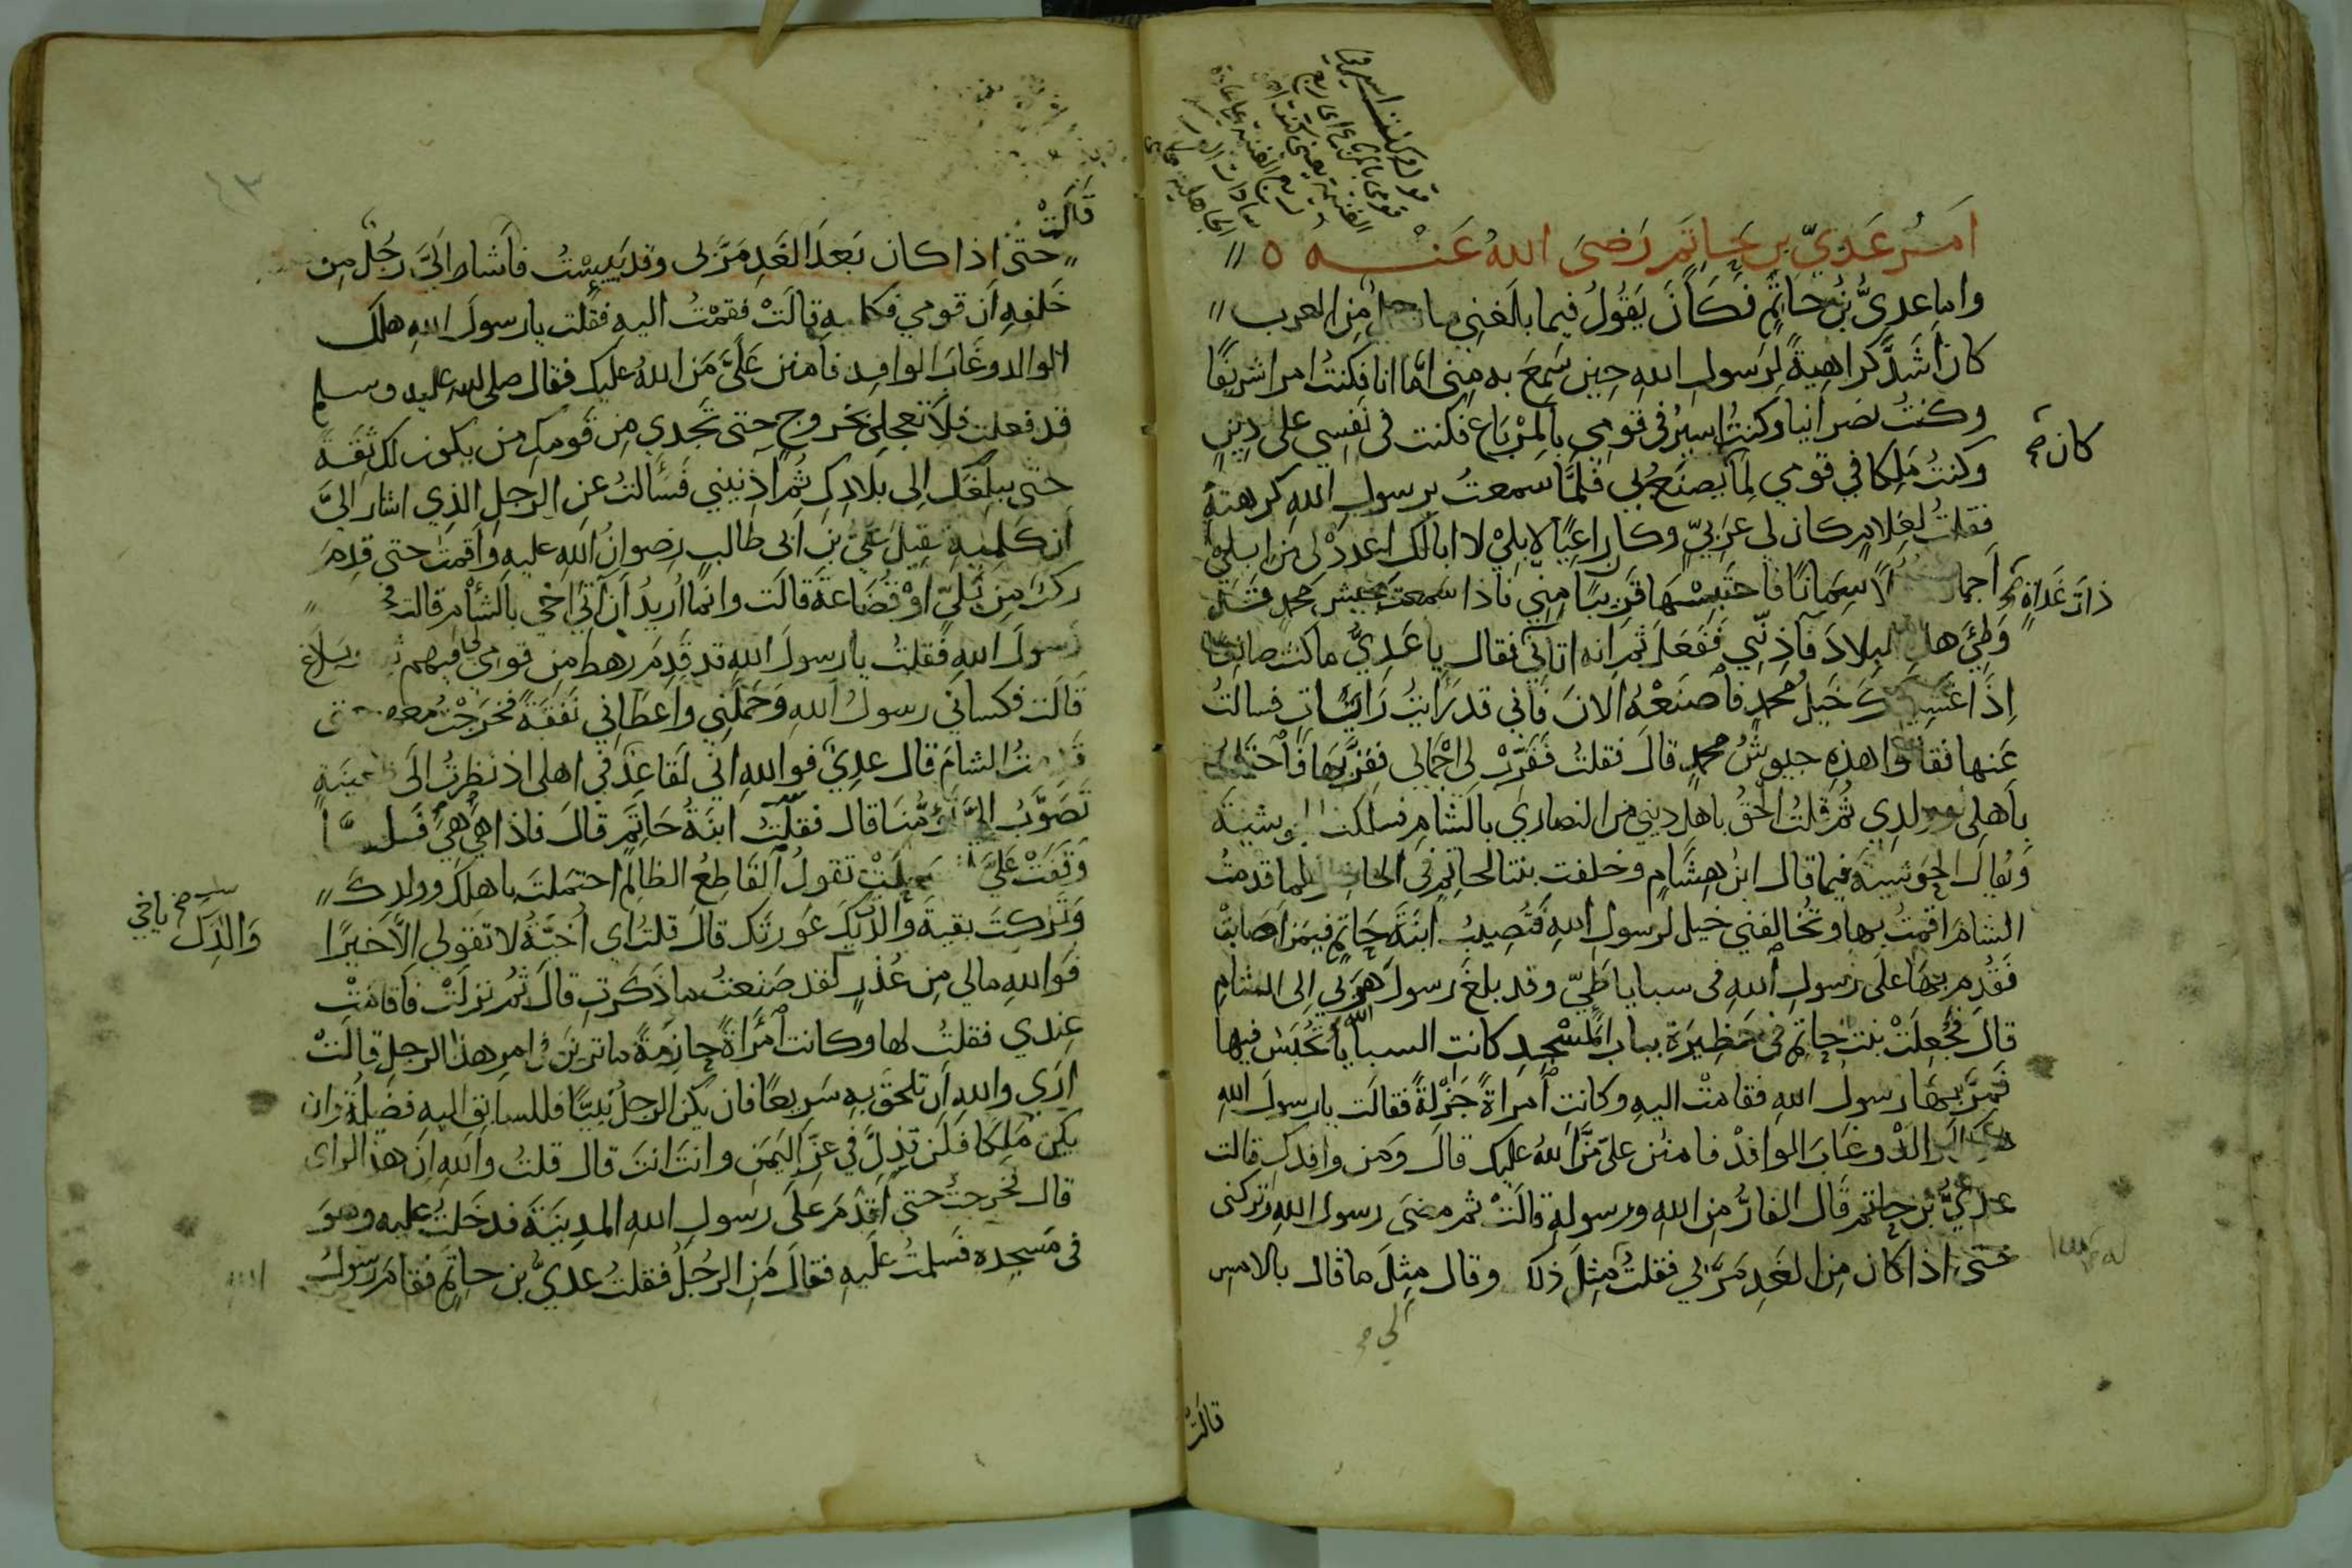 امر عدي بن حاتم رضي الله عنه
واما عدي بن حاتم فكان يقول فيما بلغني ما رجل من العرب
كان اشد كراهية لرسول الله حين سمع به مني اما انا فكنت امرا شريفا
وكنت نصرانيا وكنت اسير في قومي بالمرباع فكنت في نفسي على دين
وكنت ملكا في قومي لما يصنع بي فلما سمعت برسول الله كرهته
كان
فقلت لغلام كان لي عربي وكان راعيا لابلي لا ابالك اعدد لي من ابلي
اجمالا سمانا فاحتبسها قريبا مني فاذا سمعت بجيش محمد قد
ذات غداة
وطئ هذه البلاد فآذني ففعل ثم انه اتاني فقال يا عدي ما كنت صانعا
اذا غشيتك خيل محمد فاصنعه الان فاني قد رايت رايات فسالت
عنها فقالوا هذه جيوش محمد قال فقلت فقرب لي اجمالي فقربها فاحتملت
باهلي وولدي ثم قلت الحق باهل ديني من النصاري بالشام فسلكت الجوشية
ويقال الحوشية فيما قال ابن هشام وخلفت بنتا لحاتم في الحاضر فلما قدمت
الشام اقمت بها وتخالفني خيل لرسول الله فتصيب ابنة حاتم فيمن اصابت
فقدم بها على رسول الله في سبايا طي وقد بلغ رسول الله هربي الى الشام
قال فجعلت بنت حاتم في حظيرة بباب المسجد كانت السبايا تحبس فيها
فمر بها رسول الله فقامت اليه وكانت امراة جزلة فقالت يا رسول الله
هلك الوالد وغاب الوافد فامنن علي من الله عليك قال ومن وافدك قالت
عدي بن حاتم قال الفار من الله ورسوله قالت ثم مضى رسول الله وتركني
حتى اذا كان من الغد مر بي فقلت مثل ذلك وقال مثل ما قال بالامس
الي
قالت
قالت
حتى اذا كان بعد الغد مر بي وقد يئست فاشار الي رجل من
خلفه ان قومي فكلميه قالت فقمت اليه فقلت يا رسول الله هلك
الوالد وغاب الوافد فامنن علي من الله عليك فقال صلى الله عليه وسلم
قد فعلت فلا تعجلي بخروج حتى تجدي من قومك من يكون لك ثقة
حتى يبلغك الى بلادك ثم اذنيني فسالت عن الرجل الذي اشار الي
ان كلميه فقيل علي بن ابي طالب رضوان الله عليه واقمت حتى قدم
ركب من بلي او قضاعة قالت وانما اريد ان آتي اخي بالشأم قالت
رسول الله فقلت يا رسول الله قد قدم رهط من قومي لي فيهم ثقة وبلاغ
قالت فكساني رسول الله وحملني واعطاني نفقة فخرجت معهم حتى
قدمت الشام قال عدي فوالله اني لقاعد في اهلي اذ نظرت الى ظعينة
تصوب الي تؤمنا قال فقلت ابنة حاتم قال فاذا هي هي فلما
وقفت علي تقول القاطع الظالم احتملت باهلك وولدك
وتركت بقية والديك عورتك قال قلت اي اخية لا تقولي الا خيرا
والدك
فوالله مالي من عذر لقد صنعت ما ذكرت قال ثم نزلت فاقامت
عندي فقلت لها وكانت امراة حازمة ما ترين في امر هذا الرجل قالت
اري والله ان تلحق به سريعا فان يكن الرجل نبيا فللسابق اليه فضيلة وان
يكن ملكا فلن تذل في عز اليمن وانت انت قال قلت والله ان هذا الراى
قال فخرجت حتى اقدم على رسول الله المدينة فدخلت عليه وهو
في مسجده فسلمت عليه فقال من الرجل فقلت عدي بن حاتم فقام رسول